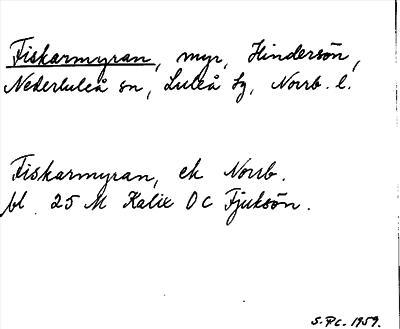 Fiskarmyran, myr, Hindersön,
Nederluleå sn, Luleå tg, Norrb. l.
Fiskarmyran, ek Norrb.
bl. 25 M Kalix OC Fjuksön.
S.PC. 1959.